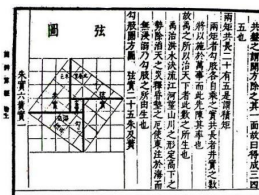 共盤之謂開方除之其一面故曰得成三四
五也
兩矩共長二十有五是謂積矩
兩矩者勾股各自乘之實共長者并實之數
將以施於萬事而此先陳其率也
故禹之所以治天下者此數之所生也
禹治洪水決流江河望山川之形定高下之
勢除滔天之災釋昏墊之厄使東注於海而
無浸溺乃勾股之所由生也
勾股圓方圖 弦實二十五朱及黃
弦圖
朱實六黃實一